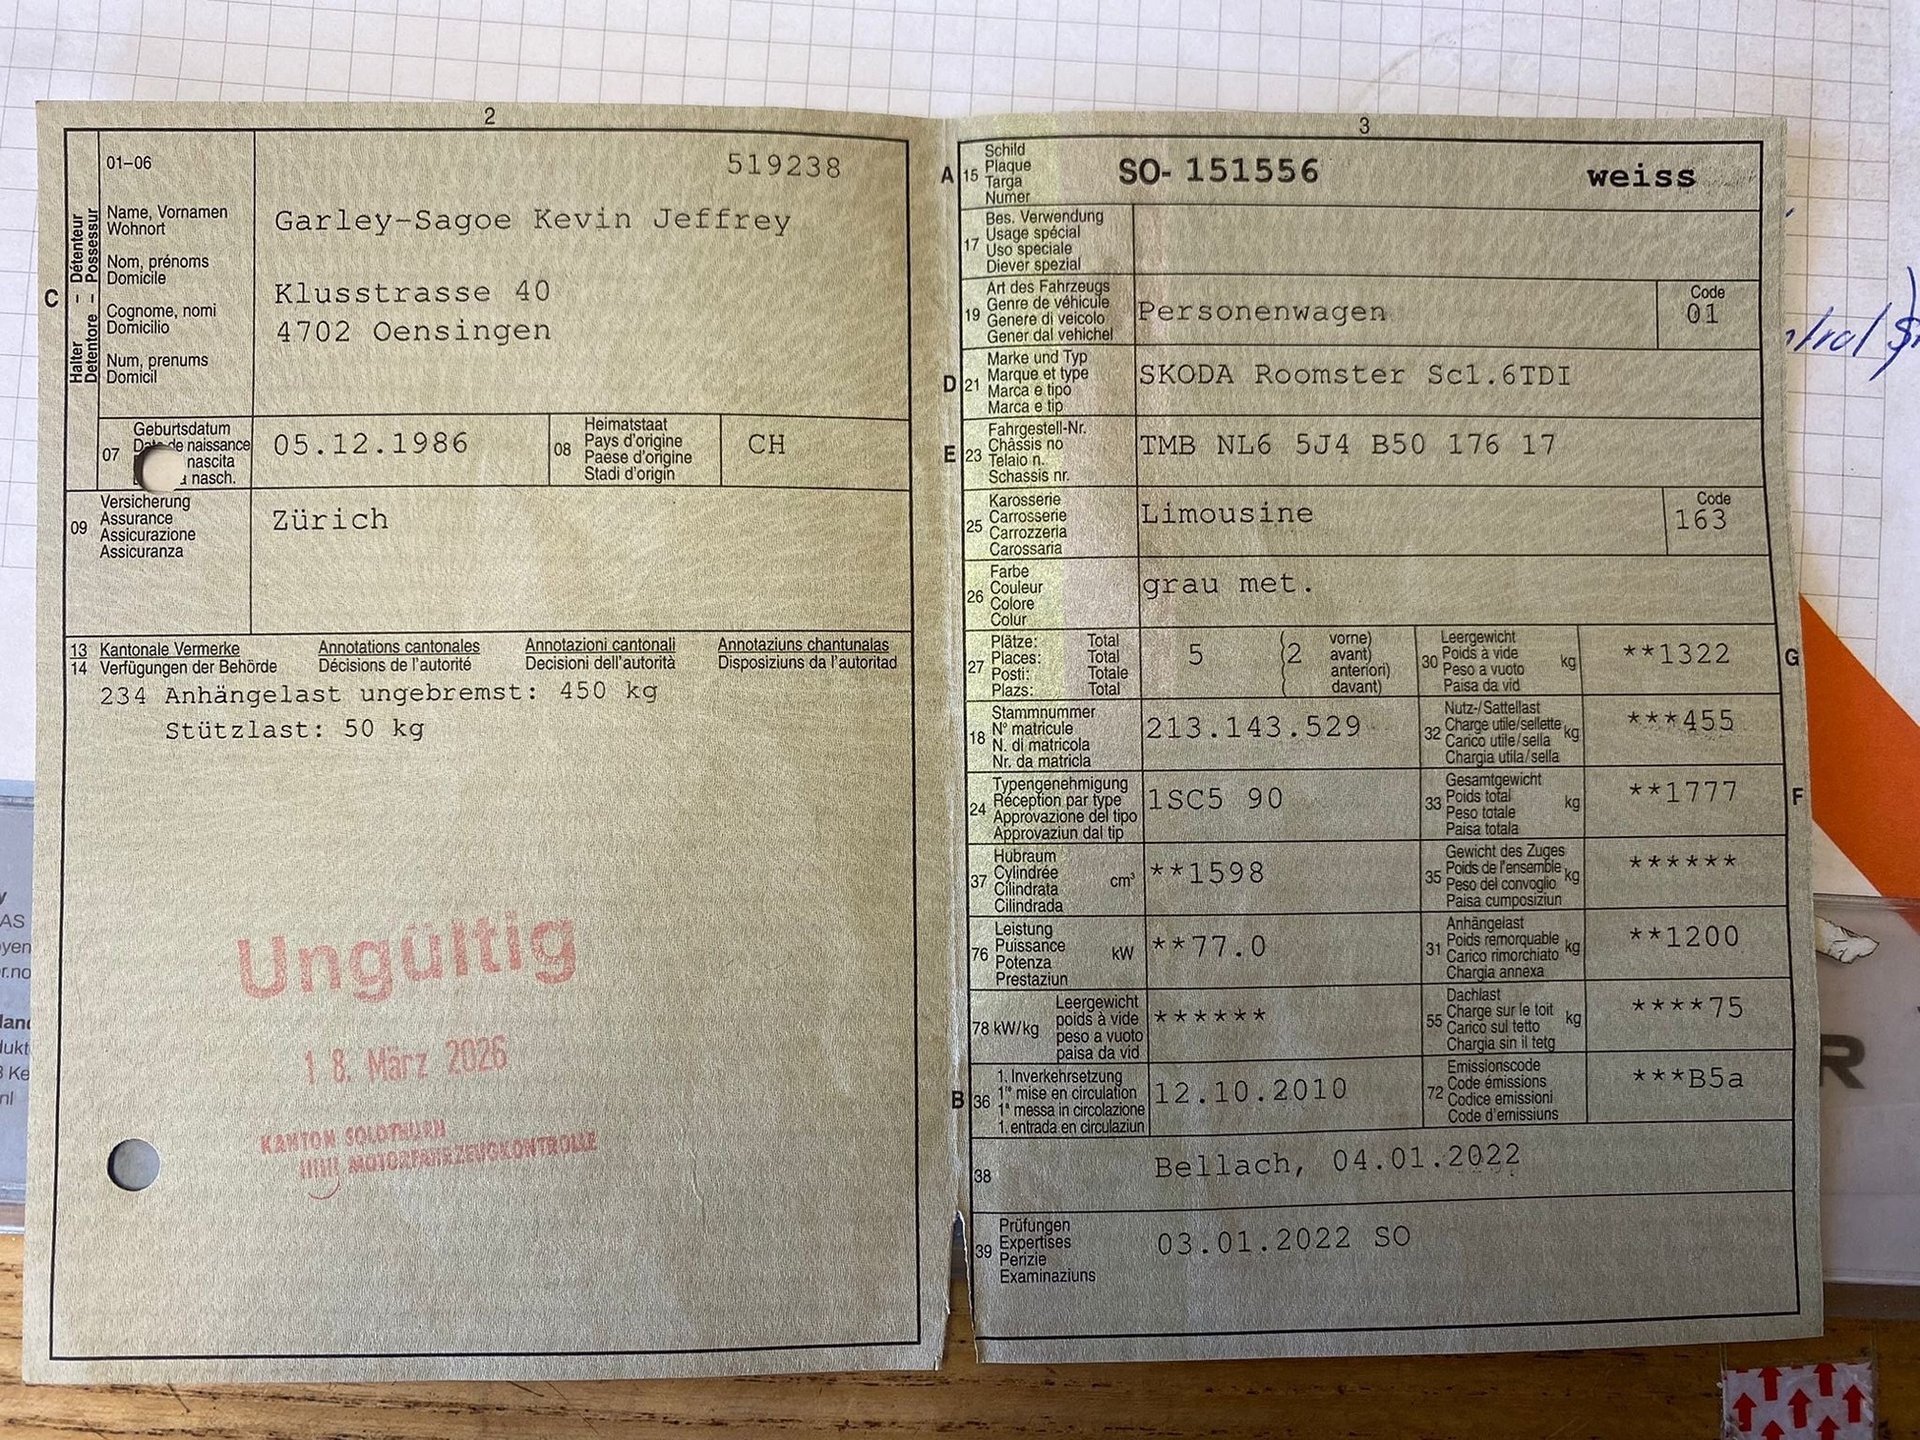 2
01–06
519238
Halter – Détenteur
Detentore – Possessur
C
Name, Vornamen
Wohnort
Nom, prénoms
Domicile
Cognome, nomi
Domicilio
Num, prenums
Domicil
Garley-Sagoe Kevin Jeffrey
Klusstrasse 40
4702 Oensingen
07
Geburtsdatum
de naissance
nascita
nasch.
05.12.1986
08
Heimatstaat
Pays d'origine
Paese d'origine
Stadi d'origin
CH
09
Versicherung
Assurance
Assicurazione
Assicuranza
Zürich
13 Kantonale Vermerke Annotations cantonales Annotazioni cantonali Annotaziuns chantunalas
14 Verfügungen der Behörde Décisions de l'autorité Decisioni dell'autorità Disposiziuns da l'autoritad
234 Anhängelast ungebremst: 450 kg
Stützlast: 50 kg
Ungültig
18. März 2026
KANTON SOLOTHURN
MOTORFAHRZEUGKONTROLLE
3
A
15
Schild
Plaque
Targa
Numer
SO- 151556
weiss
17
Bes. Verwendung
Usage spécial
Uso speciale
Diever spezial
19
Art des Fahrzeugs
Genre de véhicule
Genere di veicolo
Gener dal vehichel
Personenwagen
Code
01
D
21
Marke und Typ
Marque et type
Marca e tipo
Marca e tip
SKODA Roomster Sc1.6TDI
E
23
Fahrgestell-Nr.
Châssis no
Telaio n.
Schassis nr.
TMB NL6 5J4 B50 176 17
25
Karosserie
Carrosserie
Carrozzeria
Carossaria
Limousine
Code
163
26
Farbe
Couleur
Colore
Colur
grau met.
27
Plätze: Total
Places: Total
Posti: Totale
Plazs: Total
5
(2
vorne)
avant)
anteriori)
davant)
30
Leergewicht
Poids à vide
Peso a vuoto
Paisa da vid
kg
**1322
G
18
Stammnummer
N° matricule
N. di matricola
Nr. da matricla
213.143.529
32
Nutz-/Sattellast
Charge utile/sellette
Carico utile/sella
Chargia utila/sella
kg
***455
24
Typengenehmigung
Réception par type
Approvazione del tipo
Approvaziun dal tip
1SC5 90
33
Gesamtgewicht
Poids total
Peso totale
Paisa totala
kg
**1777
F
37
Hubraum
Cylindrée
Cilindrata
Cilindrada
cm³
**1598
35
Gewicht des Zuges
Poids de l'ensemble
Peso del convoglio
Paisa cumposiziun
kg
******
76
Leistung
Puissance
Potenza
Prestaziun
kW
**77.0
31
Anhängelast
Poids remorquable
Carico rimorchiato
Chargia annexa
kg
**1200
78 kW/kg
Leergewicht
poids à vide
peso a vuoto
paisa da vid
******
55
Dachlast
Charge sur le toit
Carico sul tetto
Chargia sin il tetg
kg
****75
B
36
1. Inverkehrsetzung
1re mise en circulation
1a messa in circolazione
1. entrada en circulaziun
12.10.2010
72
Emissionscode
Code émissions
Codice emissioni
Code d'emissiuns
***B5a
38
Bellach, 04.01.2022
39
Prüfungen
Expertises
Perizie
Examinaziuns
03.01.2022 SO
R